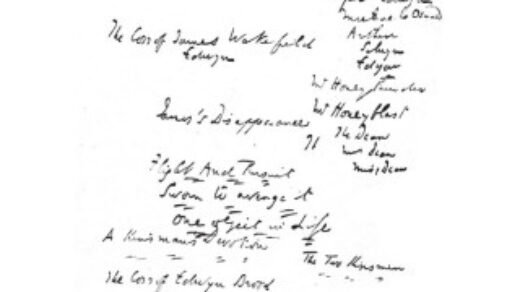 The Loss of James Wakefield
Edwyn
Arthur
Selwyn
Edgar
Mr Honeythunder
Mr Honeyblast
James's Disappearance
The Dean
Mrs Dean
Miss Dean
Flight And Pursuit
Sworn to avenge it
One object in Life
A Kinsman's Devotion
The Two Kinsmen
The Loss of Edwyn Brood